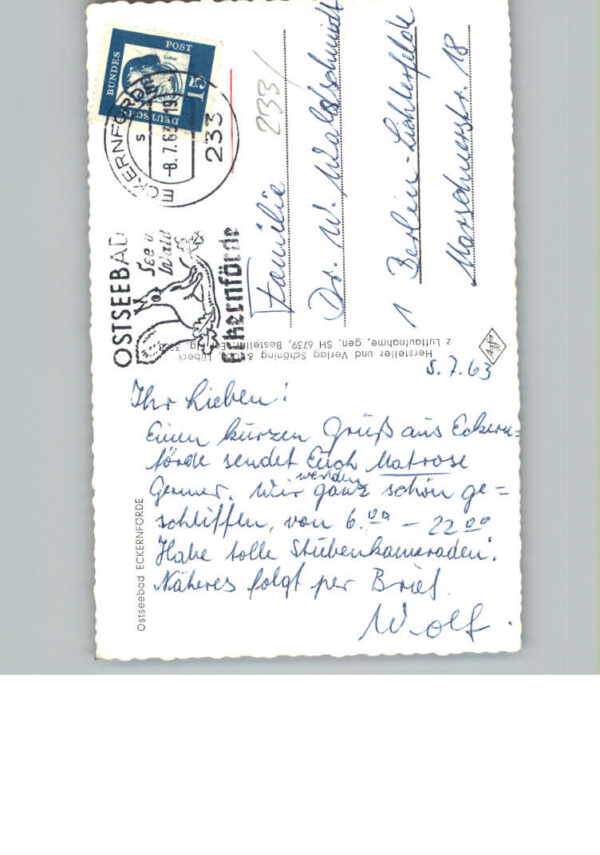 DEUTSCHE
BUNDES
POST
15
ECKERNFÖRDE
-8.7.63
233
OSTSEEBAD
See u
Wald
Eckernförde
233/
Familie
Dr. W. Waldschmidt
1 Berlin-Lichterfelde
18
Hersteller und Verlag Schöning & Lübeck
z Luftaufnahme, gen. SH 6739, Bestellnr.
5.7.63
Ihr Lieben!
Einen kurzen Gruß aus Eckern=
förde sendet Euch Matrose
werden
Wir ganz schön ge=
schliffen, von 6.00 – 22.00
Habe tolle Stubenkameraden.
Näheres folgt per Brief.
Wolf.
Ostseebad ECKERNFÖRDE